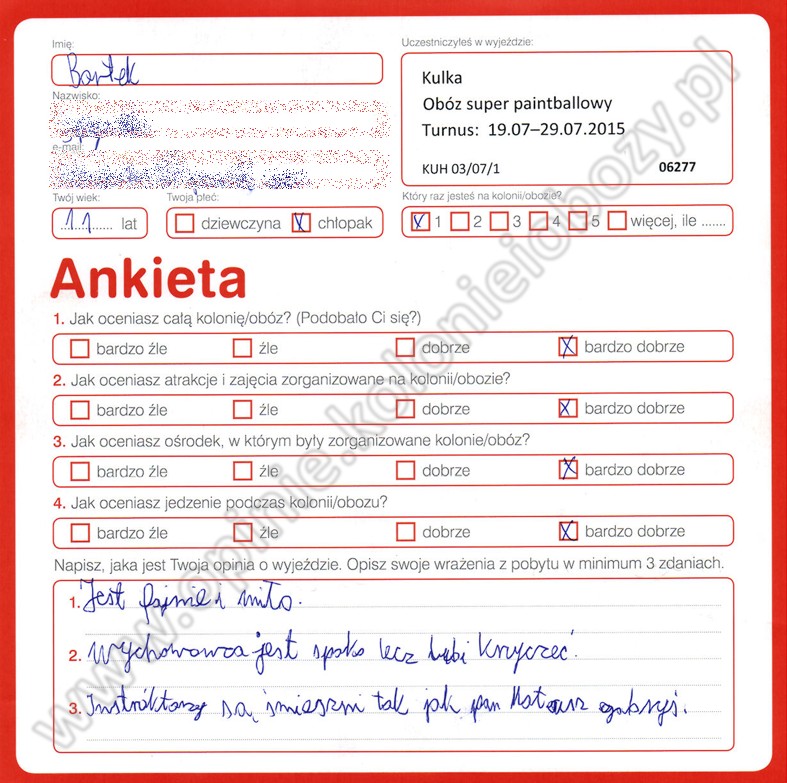 Imię:
Bartek
Uczestniczyłeś w wyjeździe:
Kulka
Obóz super paintballowy
Turnus: 19.07–29.07.2015
KUH 03/07/1 06277
Nazwisko:
e-mail:
Twój wiek:
11 lat
Twoja płeć:
dziewczyna X chłopak
Który raz jesteś na kolonii/obozie?
X 1 2 3 4 5 więcej, ile .......
Ankieta
1. Jak oceniasz całą kolonię/obóz? (Podobało Ci się?)
bardzo źle źle dobrze X bardzo dobrze
2. Jak oceniasz atrakcje i zajęcia zorganizowane na kolonii/obozie?
bardzo źle źle dobrze X bardzo dobrze
3. Jak oceniasz ośrodek, w którym były zorganizowane kolonie/obóz?
bardzo źle źle dobrze X bardzo dobrze
4. Jak oceniasz jedzenie podczas kolonii/obozu?
bardzo źle źle dobrze X bardzo dobrze
Napisz, jaka jest Twoja opinia o wyjeździe. Opisz swoje wrażenia z pobytu w minimum 3 zdaniach.
1. Jest fajnie i miło.
2. Wychowawca jest spoko lecz lubi krzyczeć.
3. Instróktorzy są śmieszni tak jak pan Mateusz
www.opinie.kolonieiobozy.pl